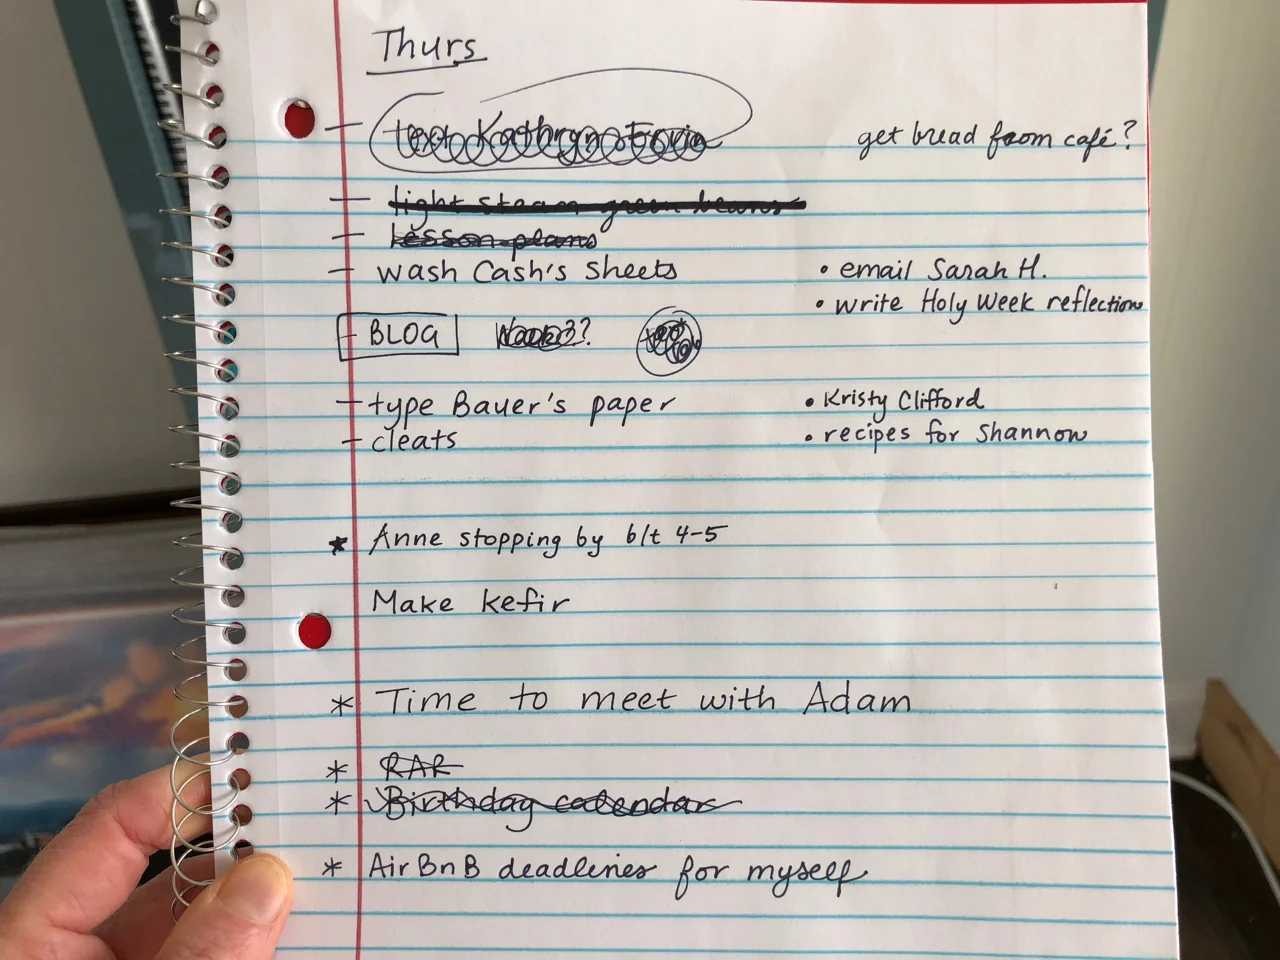 Thurs
– text Kathryn
get bread from café?
– light steam green beans
– lesson plans
– wash Cash's sheets
• email Sarah H.
• write Holy Week reflection
– BLOG
– type Bauer's paper
• Kristy Clifford
– cleats
• recipes for Shannon
* Anne stopping by b/t 4-5
Make kefir
* Time to meet with Adam
* RAR
* Birthday calendar
* AirBnB deadlines for myself